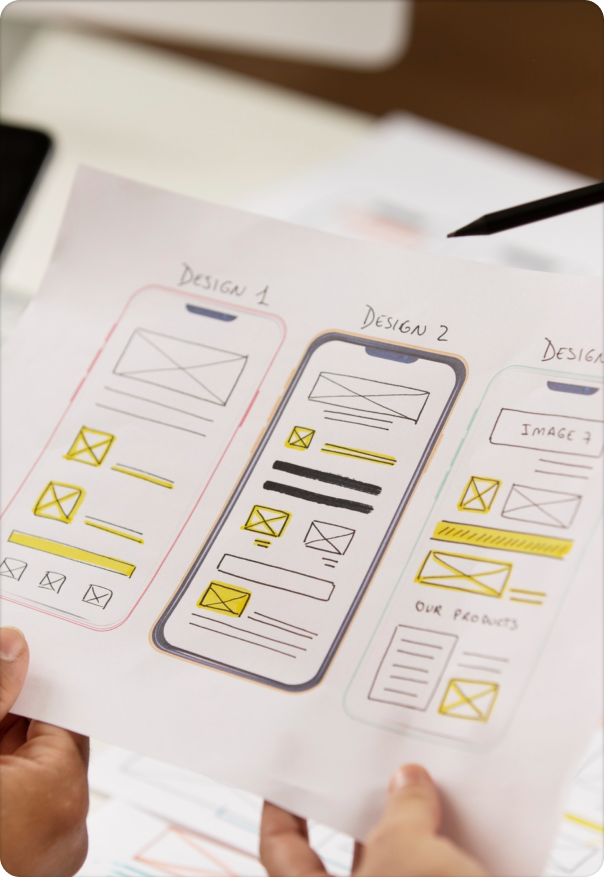 DESIGN 1
DESIGN 2
DESIGN
IMAGE 7
OUR PRODUCTS